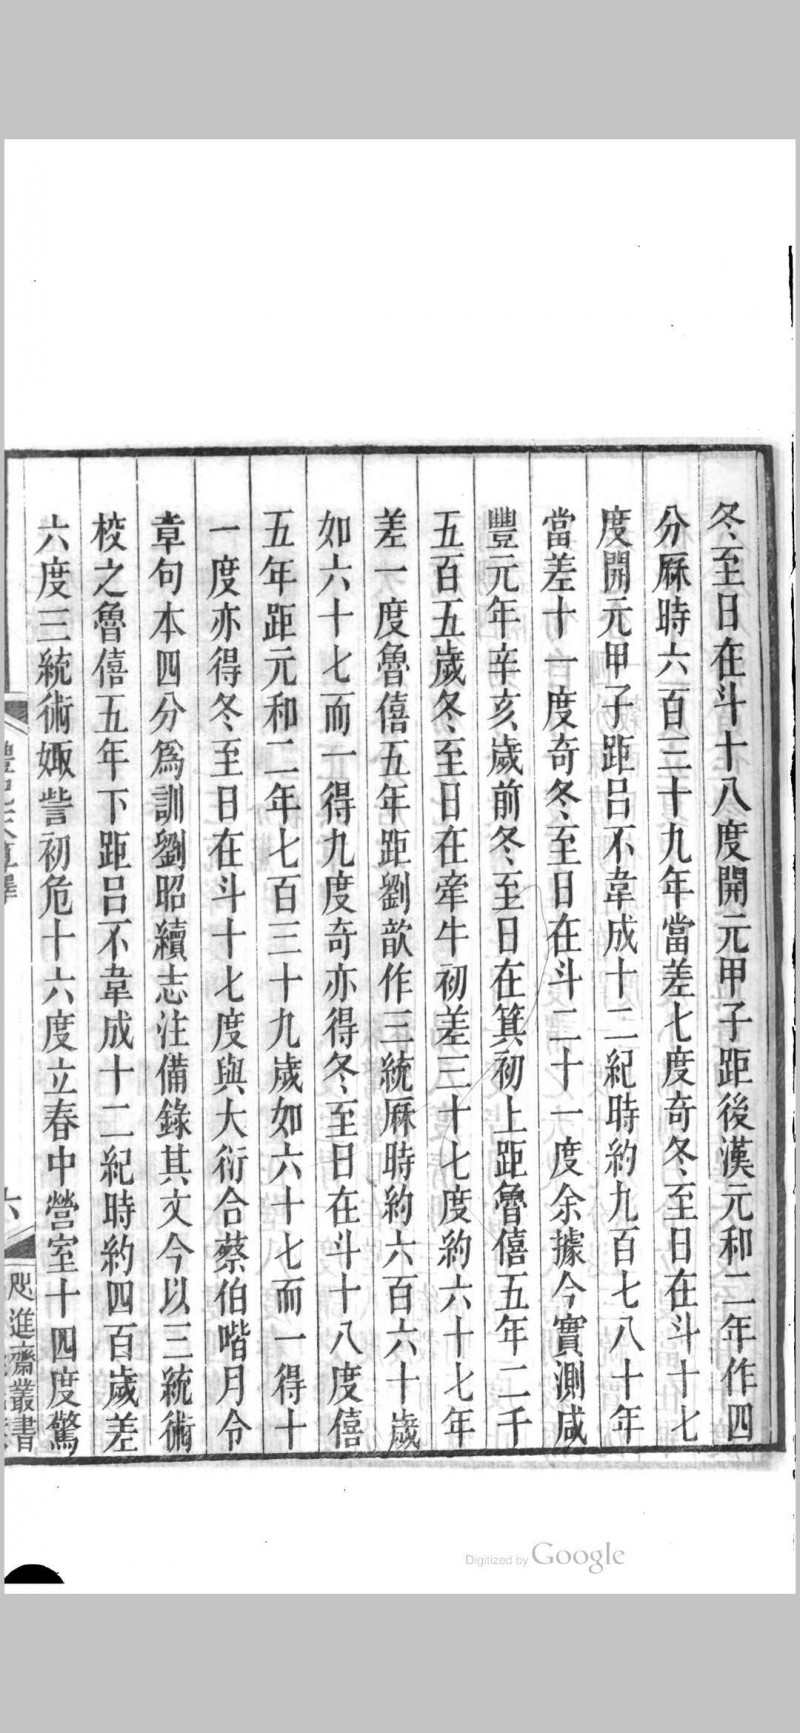 冬至日在斗十八度開元甲子距後漢元和二年作四
分厤時六百三十九年當差七度奇冬至日在斗十七
度開元甲子距呂不韋成十二紀時約九百七八十年
當差十一度奇冬至日在斗二十一度余據今實測咸
豐元年辛亥歲前冬至日在箕初上距魯僖五年二千
五百五歲冬至日在牽牛初差三十七度約六十七年
差一度魯僖五年距劉歆作三統厤時約六百六十歲
如六十七而一得九度奇亦得冬至日在斗十八度僖
五年距元和二年七百三十九歲如六十七而一得十
一度亦得冬至日在斗十七度與大衍合蔡伯喈月令
章句本四分爲訓劉昭續志注備錄其文今以三統術
校之魯僖五年下距呂不韋成十二紀時約四百歲差
六度三統術娵訾初危十六度立春中營室十四度驚
六
咫進齋叢書
Digitized by Google